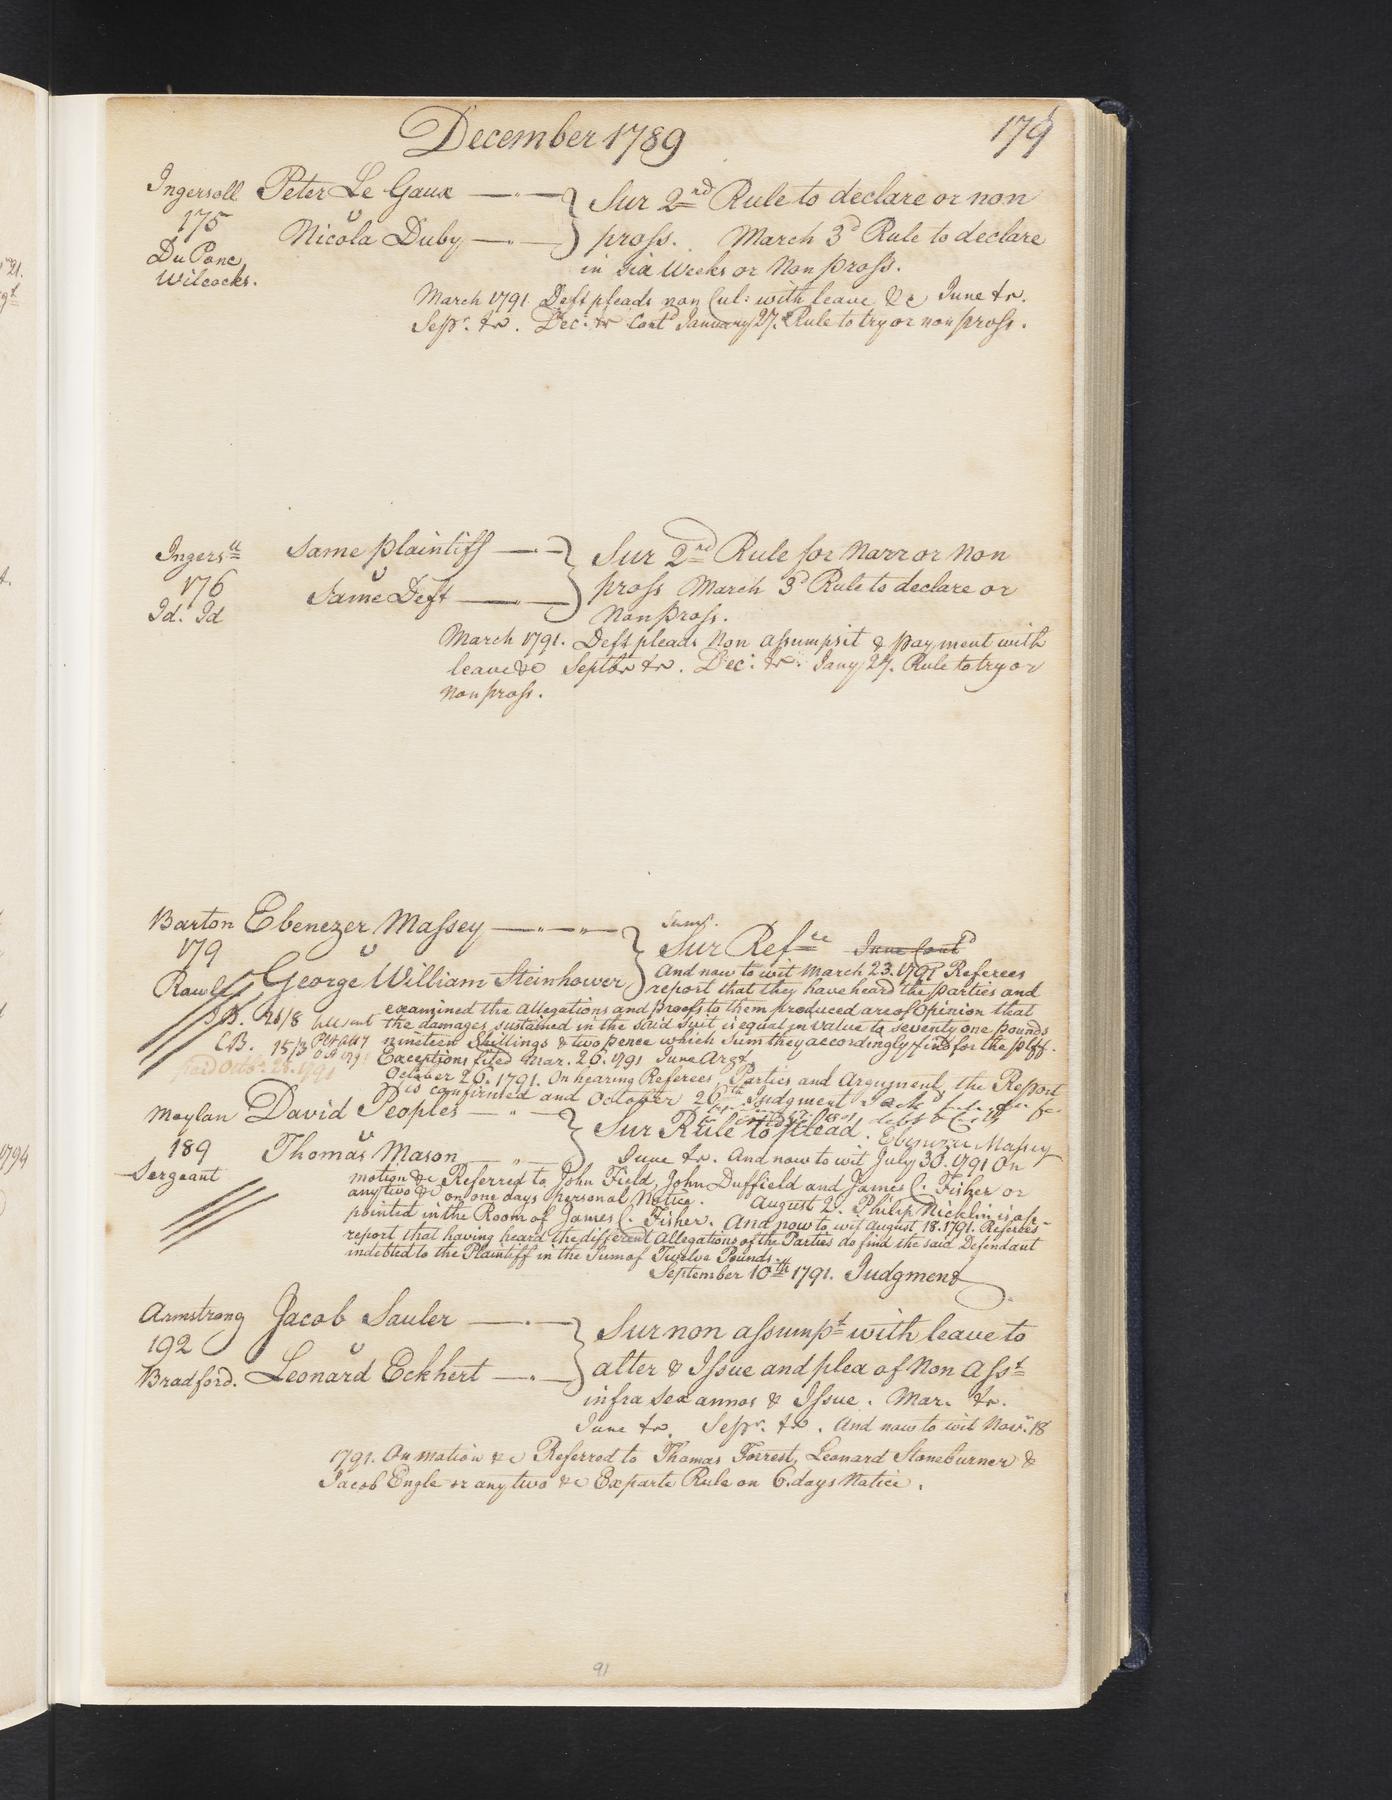 December 1789
179
Ingersoll Peter Le Gaux Sur 2nd Rule to declare or non
175 v
Nicola Duby pross. March 3d Rule to declare
Du Ponc
Wilcocks. in six Weeks or Non pross.
March 1791. Deft pleads non Cul: with leave &c June tr.
Sepr. tr. Dec: tr Contd January 27. Rule to try or non pross.
Ingersll Same plaintiff Sur 2nd Rule for Narr or Non
176 v
Same Deft pross March 3d Rule to declare or
Id. Id Non pross.
March 1791. Deft pleads Non assumpsit & payment with
leave &c Septbr tr. Dec: tr: Jany 27. Rule to try or
non pross.
Barton Ebenezer Massey
179 v Sur Refce June Contd
Rawle George William Steinhower And now to wit March 23. 1791 Referees
report that they have heard the parties and
examined the allegations and proofs to them produced are of Opinion that
26/8 the damages sustained in the said Suit is equal in value to seventy one pounds
CB. 15/3 nineteen Shillings & two pence which Sum they accordingly find for the plff.
paid Octr. 28. 1791 Exceptions filed Mar. 26. 1791 June Argt.
October 26. 1791. On hearing Referees, Parties and Argument, the Report
is confirmed and October 26th Judgment
Ebenezer Massey
Moylan David Peoples Sur Rule to plead.
189 v
Thomas Mason June tr. And now to wit July 30. 1791 On
Sergeant motion &c Referred to John Field, John Duffield and James C. Fisher or
any two &c on one days personal Notice. August 2. Philip Nicklin is ap-
pointed in the Room of James C. Fisher. And now to wit August 18. 1791. Referees
report that having heard the different Allegations of the Parties do find the said Defendant
indebted to the Plaintiff in the Sum of Twelve Pounds.
September 10th 1791. Judgment
Armstrong Jacob Sauler Sur non assumpt with leave to
192 v
Bradford. Leonard Eckhert alter & Issue and plea of Non Asst
infra sex annos & Issue. Mar. tr.
June tr. Sepr. tr. And now to wit Novr. 18
1791. On motion &c Referred to Thomas Forrest, Leonard Stoneburner &
Jacob Engle or any two &c Ex parte Rule on 6. days Notice.
91